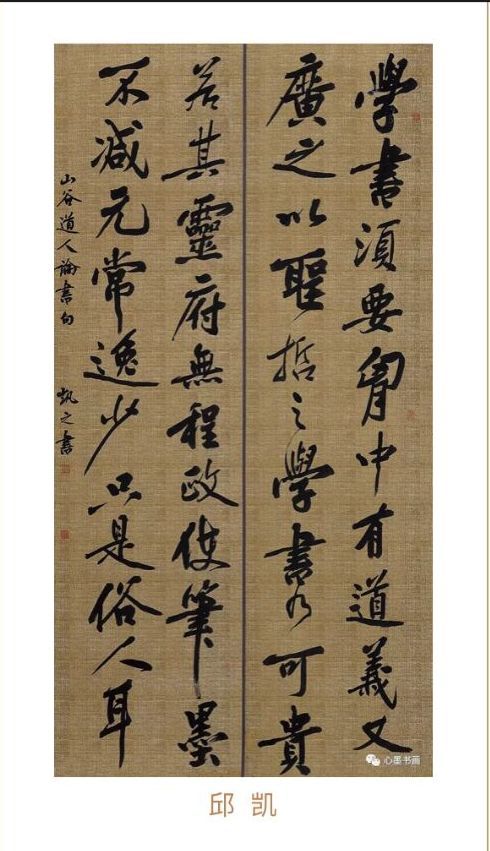 學書須要胷中有道義又
廣之以聖哲之學書乃可貴
若其靈府無程政使筆墨
不減元常逸少只是俗人耳
山谷道人論書句 凱之書
心墨书画
邱凯